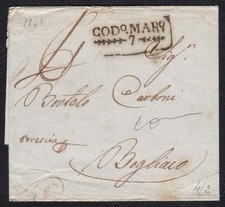 1842
CODO. MARO.
7
Sigr.
Bortolo Carboni
brescia
Bogliaco